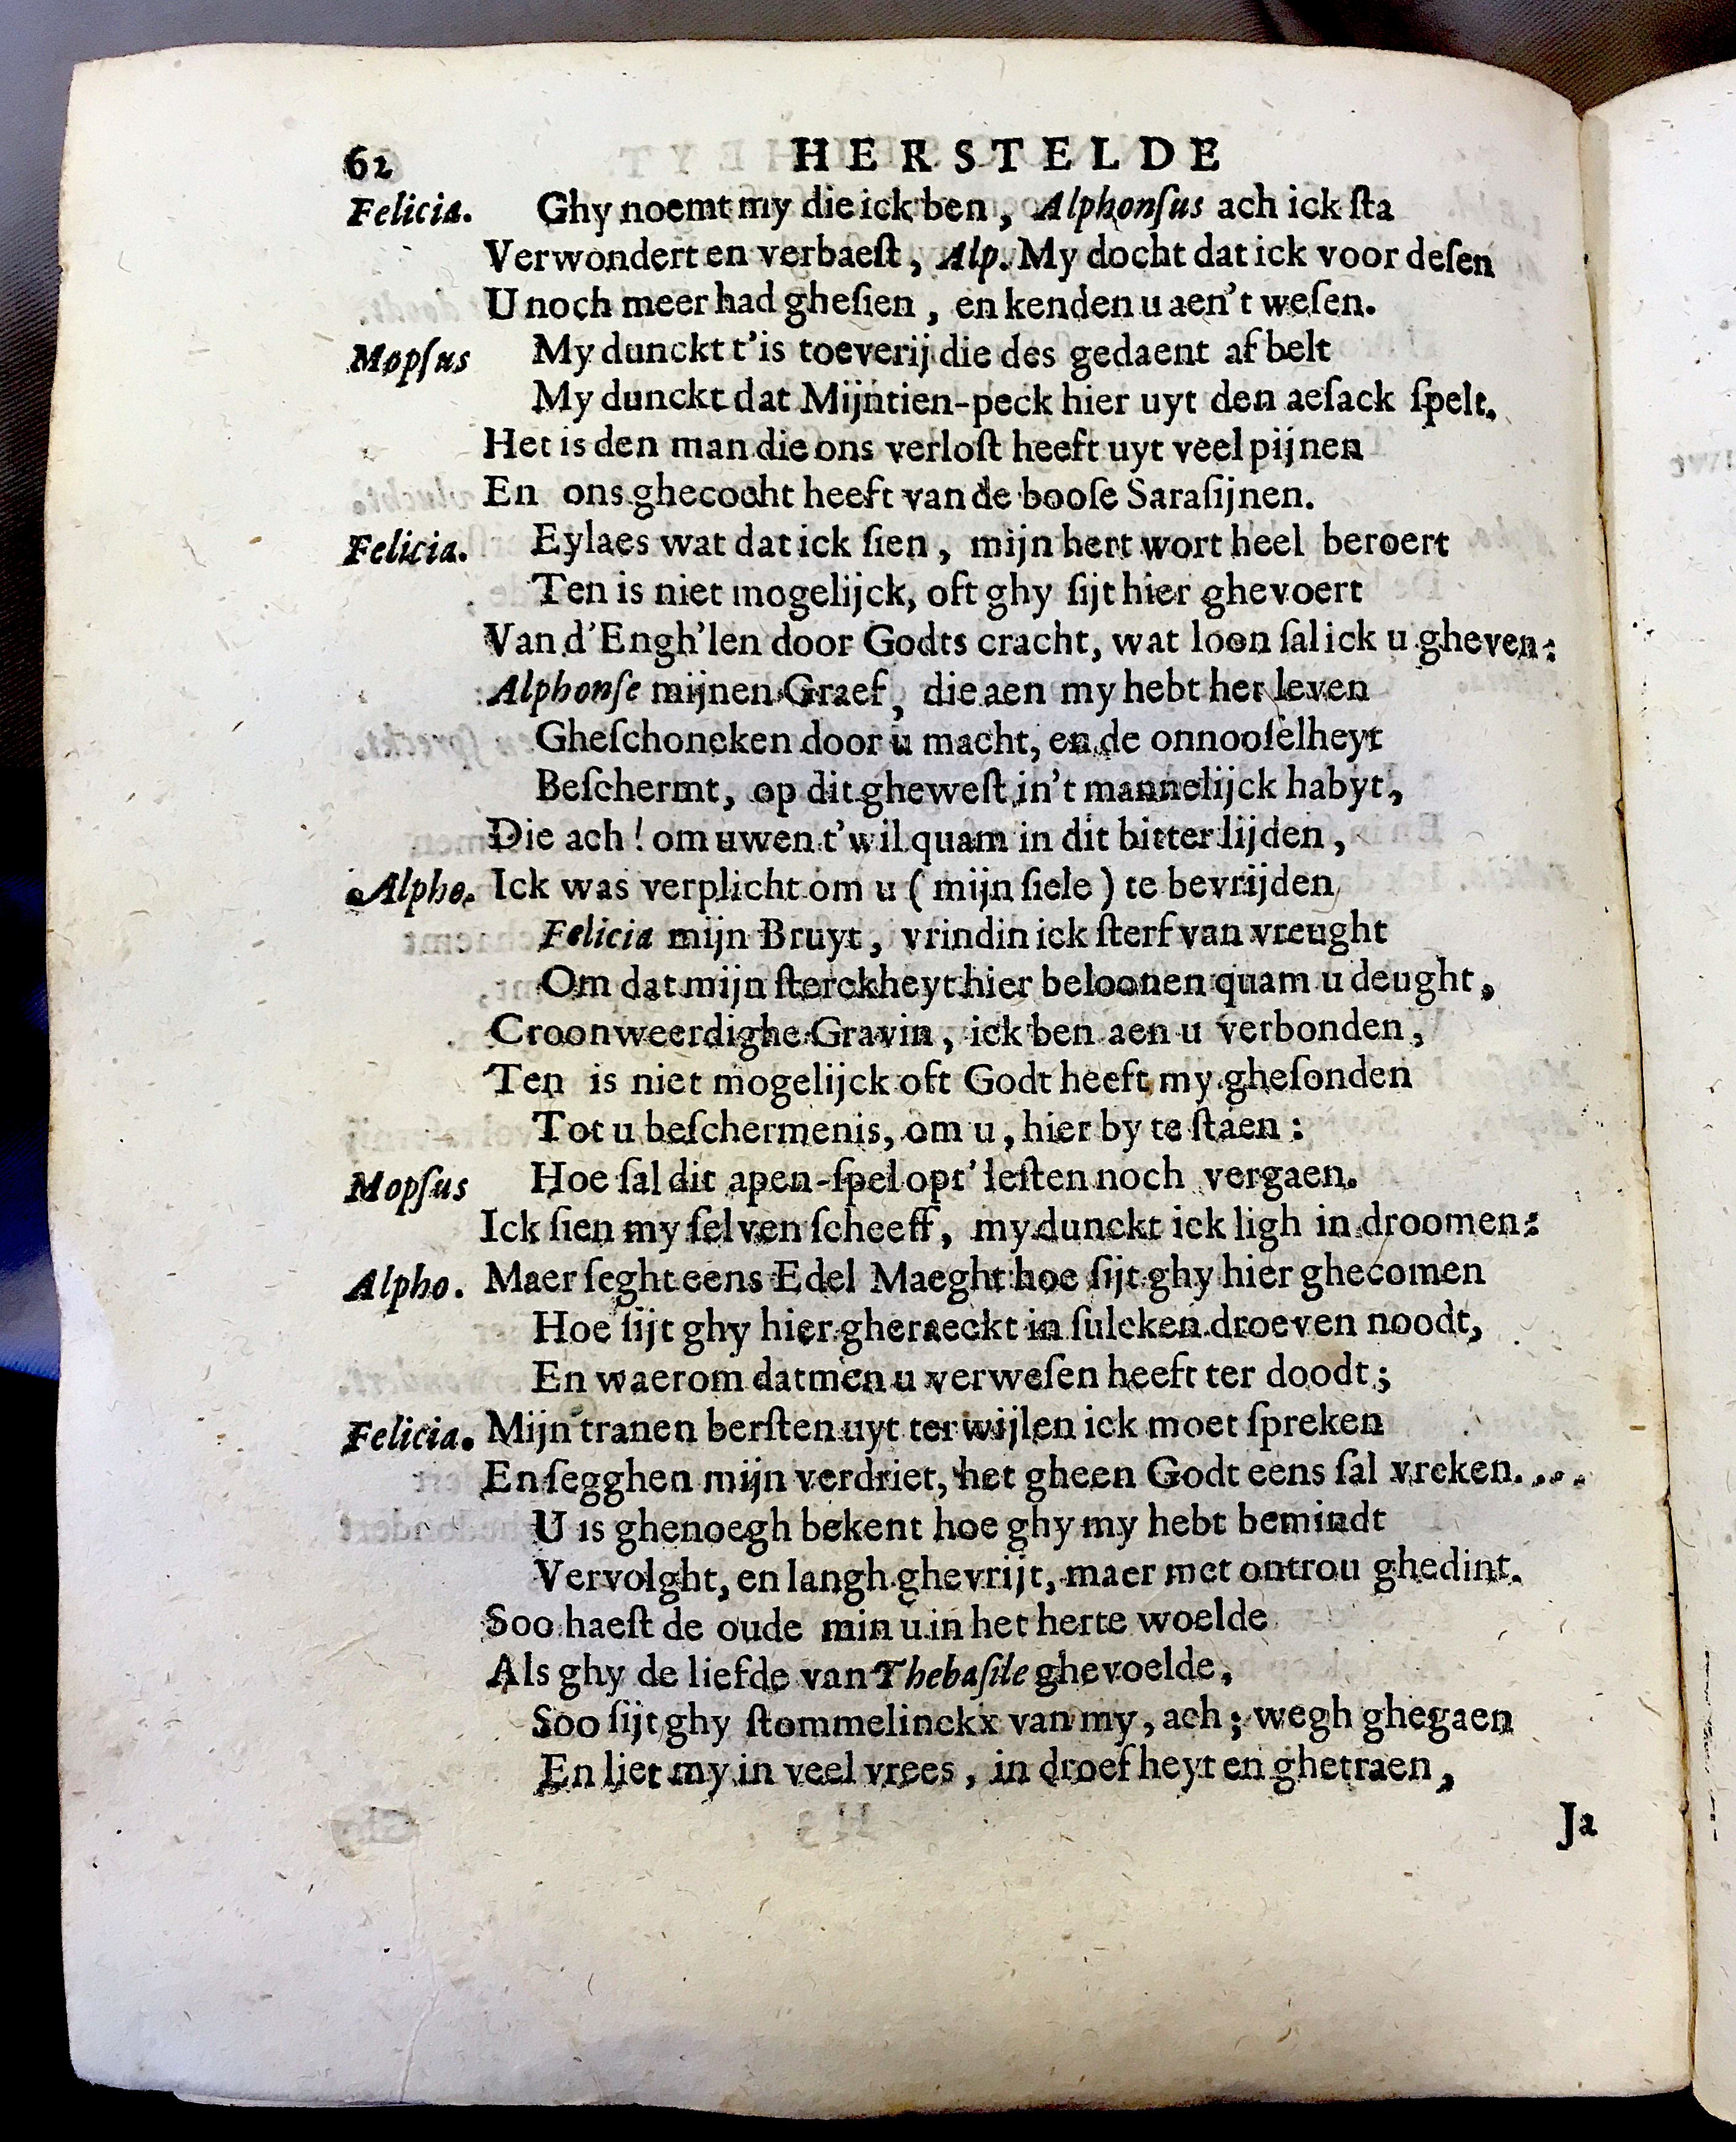 62 HERSTELDE
Felicia. Ghy noemt my die ick ben, Alphonſus ach ick ſta
Verwondert en verbaeſt, Alp. My docht dat ick voor deſen
U noch meer had gheſien, en kenden u aen't weſen.
Mopſus My dunckt t'is toeverij die des gedaent af belt
My dunckt dat Mijntien-peck hier uyt den aeſack ſpelt.
Het is den man die ons verloſt heeft uyt veel pijnen
En ons ghecocht heeft van de booſe Saraſijnen.
Felicia. Eylaes wat dat ick ſien, mijn hert wort heel beroert
Ten is niet mogelijck, oft ghy ſijt hier ghevoert
Van d'Engh'len door Godts cracht, wat loon ſal ick u gheven:
Alphonſe mijnen Graef, die aen my hebt het leven
Gheſchoncken door u macht, en de onnooſelheyt
Beſchermt, op dit gheweſt in't mannelijck habyt,
Die ach! om uwen t'wil quam in dit bitter lijden,
Alpho. Ick was verplicht om u (mijn ſiele) te bevrijden
Felicia mijn Bruyt, vrindin ick ſterf van vreught
Om dat mijn ſterckheyt hier beloonen quam u deught,
Croonweerdighe Gravin, ick ben aen u verbonden,
Ten is niet mogelijck oft Godt heeft my gheſonden
Tot u beſchermenis, om u, hier by te ſtaen:
Mopſus Hoe ſal dit apen-ſpel opt' leſten noch vergaen.
Ick ſien my ſelven ſcheeff, my dunckt ick ligh in droomen:
Alpho. Maer ſeght eens Edel Maeght hoe ſijt ghy hier ghecomen
Hoe ſijt ghy hier gheraeckt in ſulcken droeven noodt,
En waerom datmen u verweſen heeft ter doodt;
Felicia. Mijn tranen berſten uyt terwijlen ick moet ſpreken
En ſegghen mijn verdriet, het gheen Godt eens ſal vreken....
U is ghenoegh bekent hoe ghy my hebt bemindt
Vervolght, en langh ghevrijt, maer met ontrou ghedint.
Soo haeſt de oude min u in het herte woelde
Als ghy de liefde van Thebaſile ghevoelde,
Soo ſijt ghy ſtommelinckx van my, ach; wegh ghegaen
En liet my in veel vrees, in droefheyt en ghetraen,
Ja